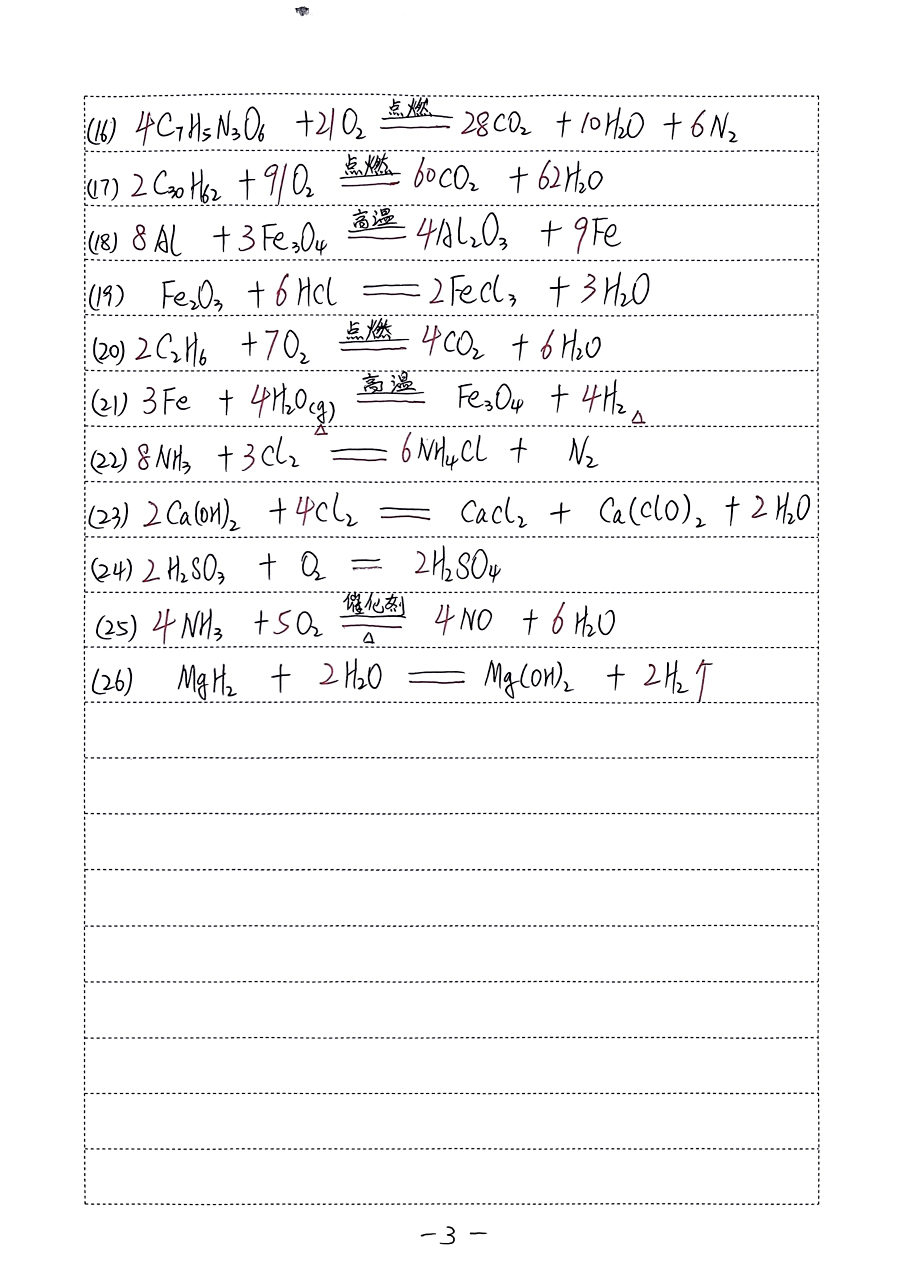 (16) 4C₇H₅N₃O₆ +21O₂ 点燃 ══ 28CO₂ +10H₂O +6N₂
(17) 2C₃₀H₆₂ +91O₂ 点燃 ══ 60CO₂ +62H₂O
(18) 8Al +3Fe₃O₄ 高温 ══ 4Al₂O₃ +9Fe
(19) Fe₂O₃ +6HCl ══ 2FeCl₃ +3H₂O
(20) 2C₂H₆ +7O₂ 点燃 ══ 4CO₂ +6H₂O
(21) 3Fe +4H₂O(g) 高温 ══ Fe₃O₄ +4H₂
△ △
(22) 8NH₃ +3Cl₂ ══ 6NH₄Cl + N₂
(23) 2Ca(OH)₂ +4Cl₂ ══ CaCl₂ + Ca(ClO)₂ +2H₂O
(24) 2H₂SO₃ + O₂ ══ 2H₂SO₄
(25) 4NH₃ +5O₂ 催化剂 ══ △ 4NO +6H₂O
(26) MgH₂ + 2H₂O ══ Mg(OH)₂ + 2H₂↑
-3-